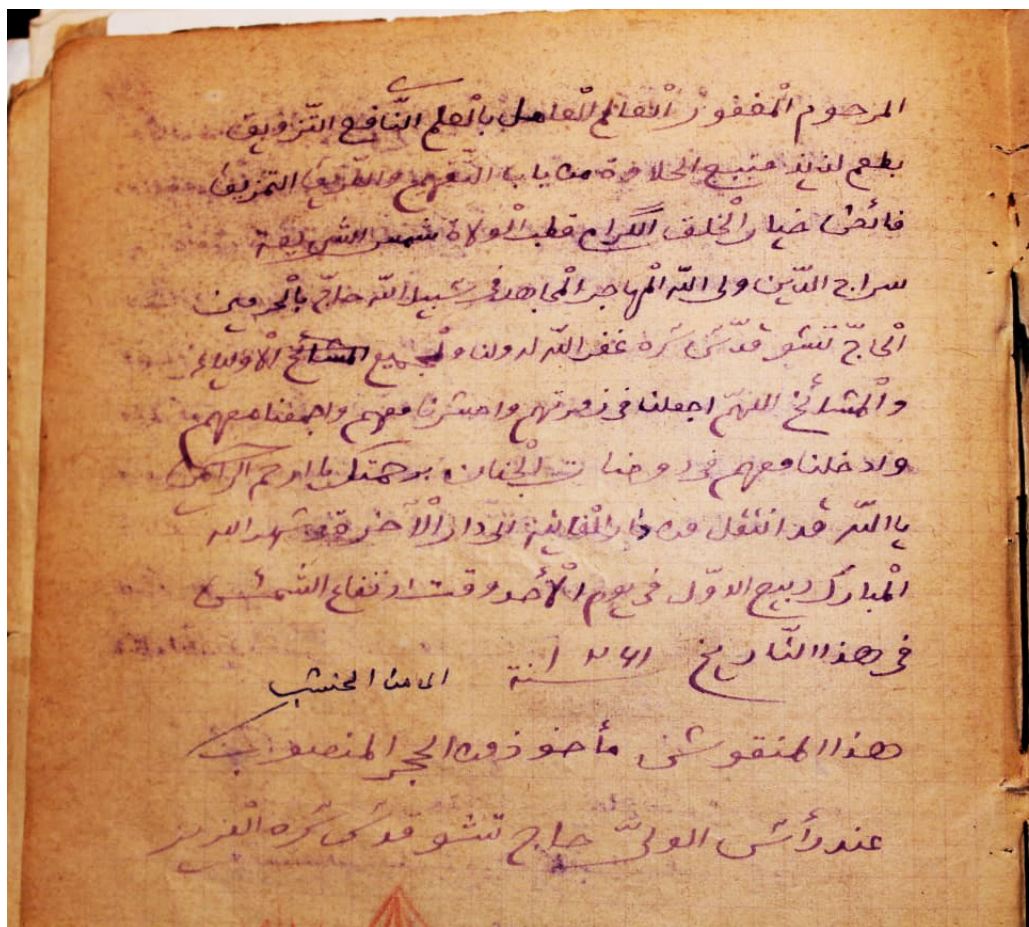 المرحوم الْمغفور الْعالم الْعامل بالْعلم النّافع التّزويق
بطعم لذيذ منبع الحلاوة من باب التّفهيم والتّعريف
فائض خيار الْخلق الكرام قطب الْولاة شمس الشريعة
سراج الدّين ولى اللّه الْمهاجر الْمجاهد فى سبيل اللّه حاجّ بالْحرمين
الْحاجّ تشو قدّس سرّه غفر اللّه له ولنا ولجميع المشائخ الْاولياء
والْمشائخ اللهمّ اجعلنا فى زمرتهم واحشرنا معهم واجمعنا معهم
وادخلنا معهم فى روضات الْجنان برحمتك يا ارحم الراحمين
يا اللّه قد انتقل من دار الْفانية الى دار الْآخرة فى شهر الله
الْمبارك ربيع الاوّل فى يوم الْأحد وقت ارتفاع الشّمس
فى هذا التّاريخ سنة ١٢٦١
هذا المنقوش مأخوذ من الحجر المنصوب
عند رأس الولىّ حاج تشو قدس سرّه العزيز